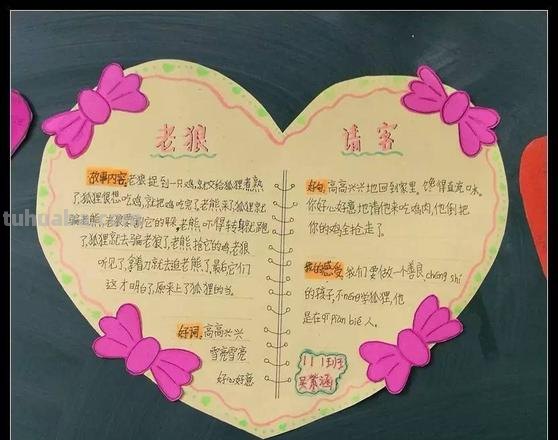 老狼
请客
故事内容:老狼捉到一只鸡,就交给狐狸煮熟
了,狐狸很想吃鸡,就把鸡吃完了,老熊来了,狐狸就
骗老熊,老狼要割它的耳朵,老熊吓得转身就跑
了,狐狸就去骗老狼了,老熊抢它的鸡,老狼
听见了,拿着刀就去追老熊了,最后它们
这才明白了,原来上了狐狸的当。
好词:高高兴兴
雪亮雪亮
好心好意
好句:高高兴兴地回到家里。馋得直流口水。
你好心好意地请他来吃鸡肉,他倒把
你的鸡全抢走了。
我的感受:我们要做一个善良、chéng shí
的孩子,不néng学狐狸,他
是在qī piàn bié人。
111班
吴紫涵
tuhua